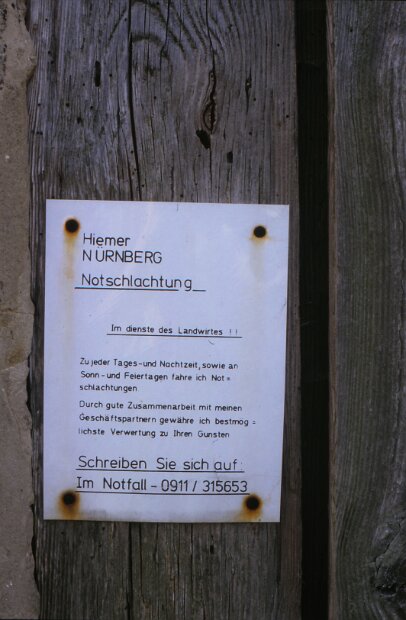 Hiemer
NÜRNBERG
Notschlachtung
Im dienste des Landwirtes !!
Zu jeder Tages-und Nachtzeit, sowie an
Sonn-und Feiertagen fahre ich Not=
schlachtungen.
Durch gute Zusammenarbeit mit meinen
Geschäftspartnern gewähre ich bestmög=
lichste Verwertung zu Ihren Gunsten
Schreiben Sie sich auf:
Im Notfall - 0911 / 315653